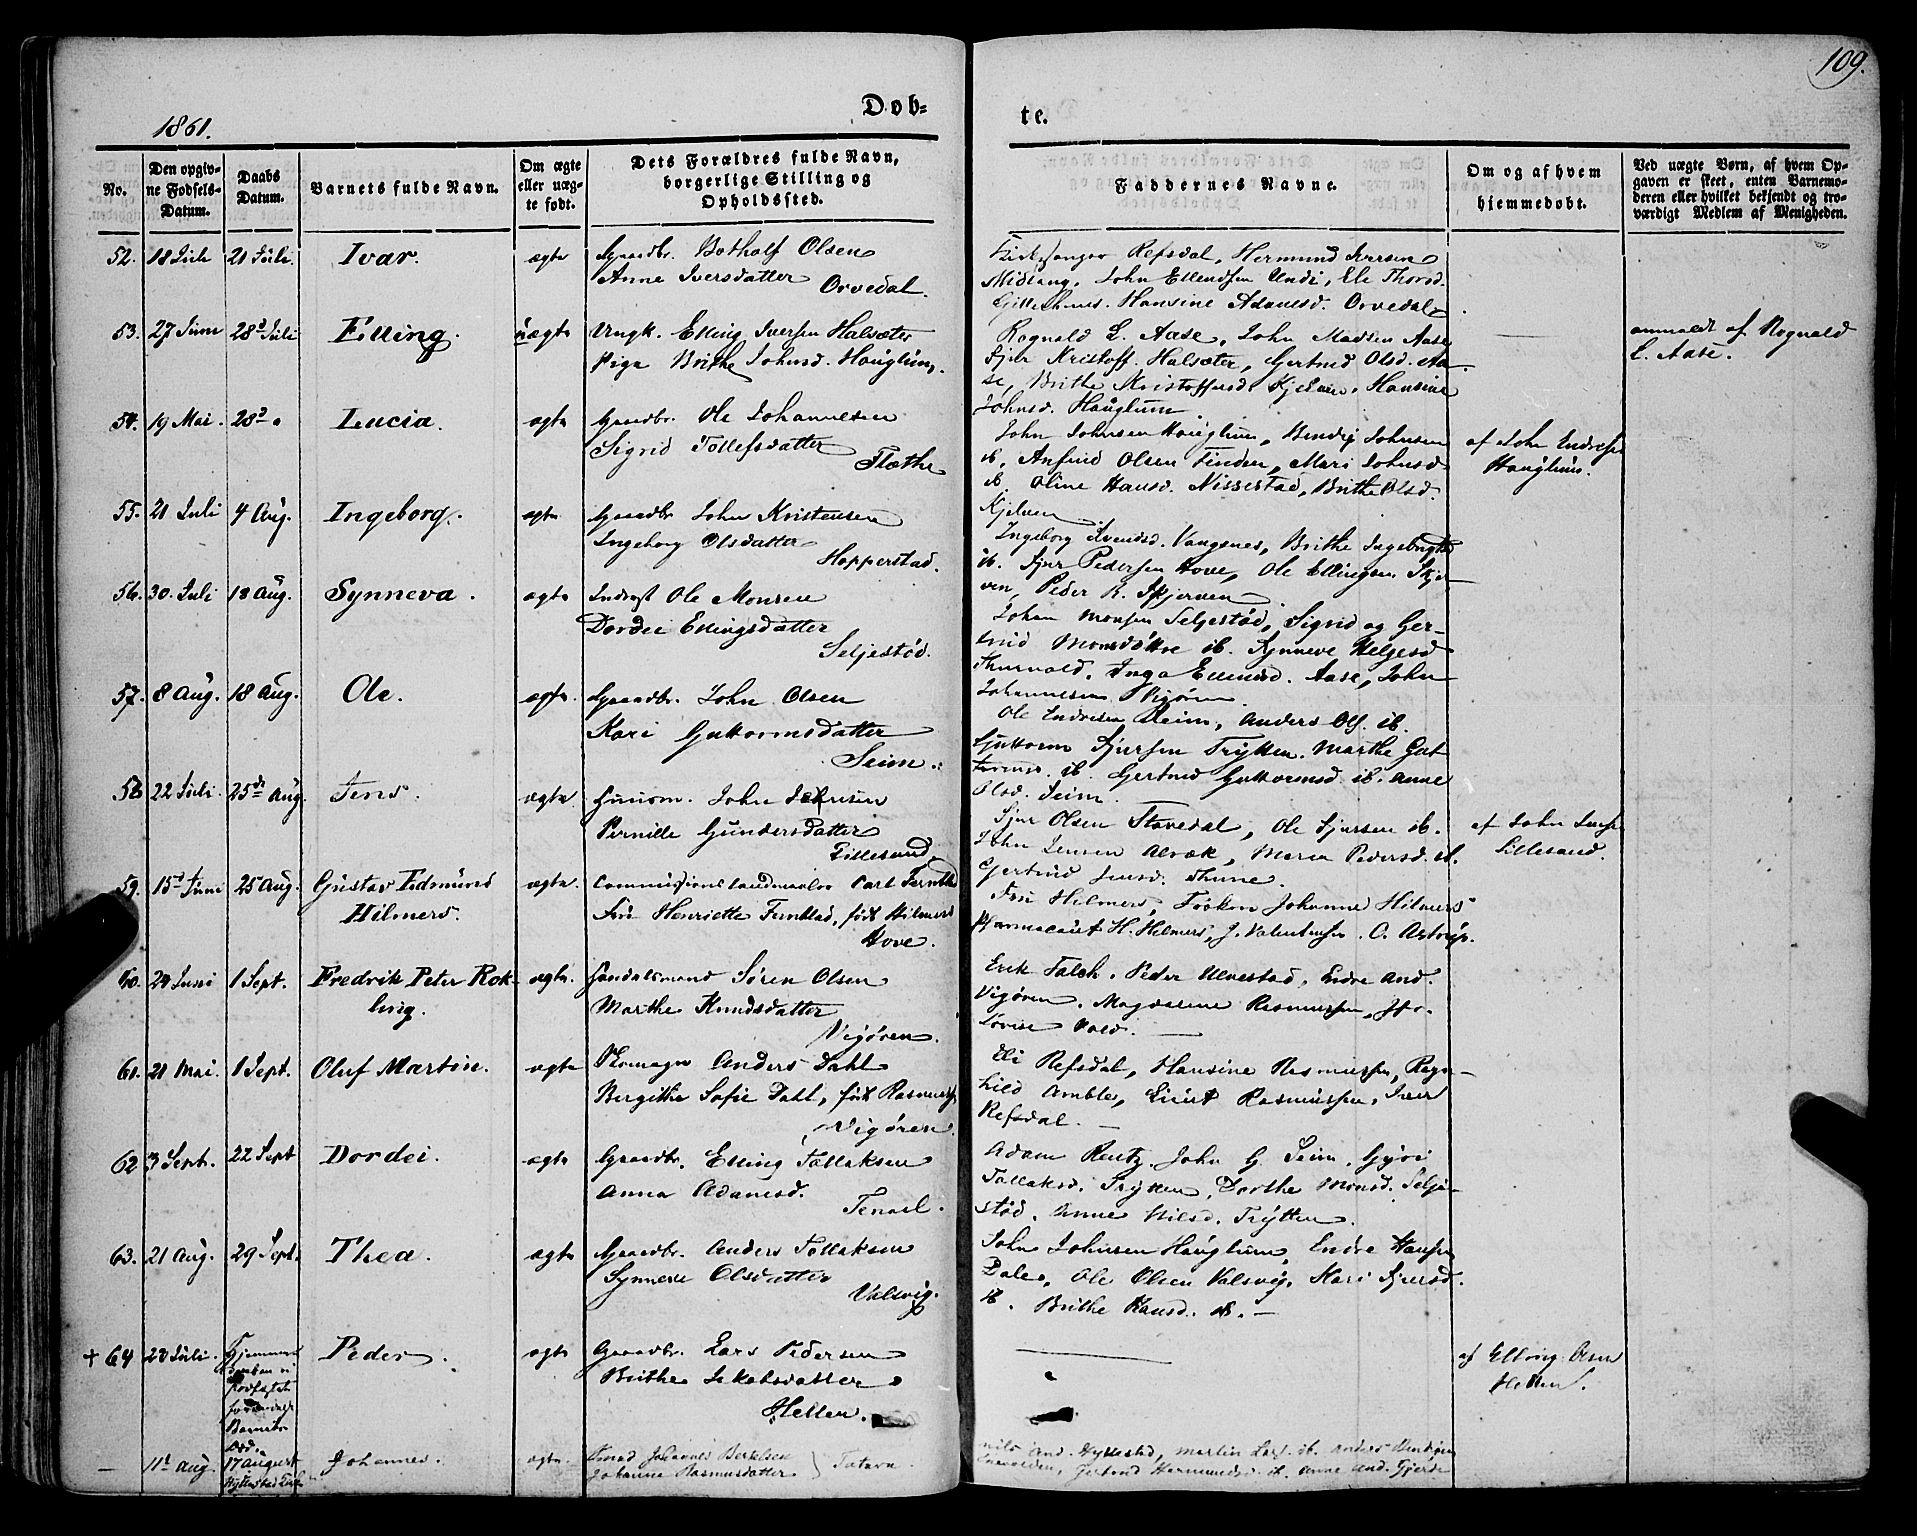 109.
1861.
Døb-
te.
No.
Den opgiv-
ne Fødsels-
Datum.
Daabs
Datum.
Barnets fulde Navn.
Om ægte
eller uæg-
te født.
Dets Forældres fulde Navn,
borgerlige Stilling og
Opholdssted.
Faddernes Navne.
Om og af hvem
hjemmedøbt.
Ved uægte Børn, af hvem Op-
gaven er skeet, enten Barnemo-
deren eller hvilket bekjendt og tro-
værdigt Medlem af Menigheden.
52. 18 Juli 21 Juli. Ivar. ægte Gaardbr. Botholf Olsen
Anne Iversdatter
Orvedal.
Kirkesanger Refsdal, Hermund Iversen
Midlang, John Ellendsen Undi, Ele Thorsd.
Hansine Adamsd. Orvedal.
53. 27 Juni 28d Juli Elling. uægte Ungk. Elling Iversen Halsæter
Pige Brithe Johnsd. Hauglum.
Rognald L. Aase, John Madsen Aase
Sjur Kristoff. Halsæter, Gertrud Olsd. Aa-
se, Brithe Kristoffersd. Hansine
Johnsd. Hauglum.
anmeldt af Rognald
L. Aase.
54. 19 Mai. 28d Lucia. ægte Gaardbr. Ole Johannesen
Sigrid Tollefsdatter
Flæthe
John Johnsen Hauglum, Bendig Johnsen
ib. Anfind Olsen Finden, Mari Johnsd.
ib. Oline Hansd. Nissestad, Brithe Olsd.
af John Endresen
Hauglum.
55. 21 Juli 4 Aug. Ingeborg. ægte Gaardbr. John Kristensen
Ingeborg Olsdatter
Hopperstad.
Ingeborg Svendsd. Vangsnes, Brithe Ingebrigtsd.
ib. Sjur Pedersen Hove, Ole Ellingsen Skjer-
ven, Peder R. Skjerven
56. 30. Juli 18 Aug. Synneva. ægte Inderst Ole Monsen
Dordei Ellingsdatter
Seljestød.
Johan Monsen Seljestød, Sigrid og Ger-
trud Monsdøttre ib. Synneve Helgesd
Inga Aase, John
Johannesen Vigøren
57. 8 Aug. 18 Aug. Ole. ægte Gaardbr. John Olsen
Kari Guttormsdatter
Seim.
Ole Endresen Seim, Anders Ols. ib.
Guttorm Sjursen Trytten. Marthe Gut-
tormsd. ib. Gertrud Guttormsd. ib. Anne
Olsd. Seim.
58 22 Juli. 25de Aug. Jens. ægte. John Jensen
Pernille Gundersdatter
Lillesand.
Sjur Olsen Stavedal, Ole Sjursen ib.
John Jensen Alræk, Maria Pedersd. ib.
Gertrud Jensd. Thune.
af John Jensen
Lillesand.
59. 15d Juni 25 Aug. Gustav Edmund
Hilmers.
ægte. Commissionslandmaaler Carl
Fru Henriette født Hilmers
Hove.
Fru Hilmers, Frøken Johanne Hilmers
Pharmaceut H. Hilmers, J. Valentinsen. O. Astrup.
60. 24 Juni 1 Sept. Fredrik Peter Rok-
ling.
ægte. Handelsmand Søren Olsen
Marthe Knudsdatter
Vigøren.
Erik Falch. Peder Ulvestad, Endre And.
Vigøren, Magdalene Rasmussen,
Lovise Vold.
61. 21 Mai. 1 Sept. Oluf Martin. ægte Skomager Anders Dahl
Bergithe Sofie Dahl, født Rasmussen
Vigøren.
Eli Refsdal, Hansine Rasmussen, Ragn-
hild Amble, Rasmussen, Iver
Refsdal.
62 3 Sept. 22 Sept Dordei. ægte Gaardbr. Elling Tollaksen
Anna Adamsd.
Tenoel.
Adam Rentz. John G. Seim. Gjøri
Tollaksd. Trytten, Dorthe Monsd. Selje-
stød. Anne Nilsd. Trytten.
63. 21 Aug. 29 Sept. Thea. ægte Gaardbr. Anders Tollaksen
Synneve Olsdatter
Valsvig.
John Johnsen Hauglum, Endre Hansen
Dale, Ole Olsen Valsvig, Kari Sjursd.
ib. Brithe Hansd. ib.
+ 64 28 Juli. Hjemme-
daaben ei
Barnets
Død.
Peder. ægte Gaardbr. Lars Pedersen
Brithe Jakobsdatter
Hellen.
af Elling Olsen
Hellen.
11t Aug. 17 August
Johannes. ægte. Johannes Bertelsen
Johanne Rasmusdatter } Tatere.
Nils And. Hyllestad, Martin Lars. ib. Anders
Gertrud Hermundsd. ib. Anne And. Gjerde